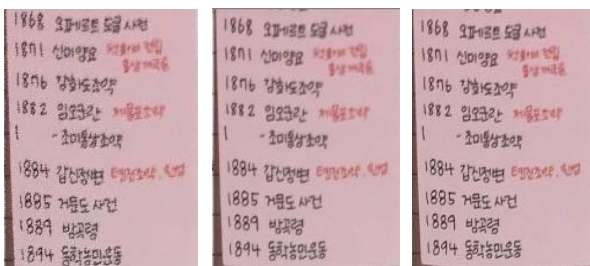 1868 오페르트 도굴 사건
1871 신미양요 척화비 건립
통상 개국론
1876 강화도조약
1882 임오군란 제물포조약
1 - 조미통상조약
1884 갑신정변 톈진조약, 한성
1885 거문도 사건
1889 방곡령
1894 동학농민운동
1868 오페르트 도굴 사건
1871 신미양요 척화비 건립
통상 개국론
1876 강화도조약
1882 임오군란 제물포조약
1 - 조미통상조약
1884 갑신정변 톈진조약, 한성
1885 거문도 사건
1889 방곡령
1894 동학농민운동
1868 오페르트 도굴 사건
1871 신미양요 척화비 건립
통상 개국론
1876 강화도조약
1882 임오군란 제물포조약
1 - 조미통상조약
1884 갑신정변 톈진조약, 한성
1885 거문도 사건
1889 방곡령
1894 동학농민운동